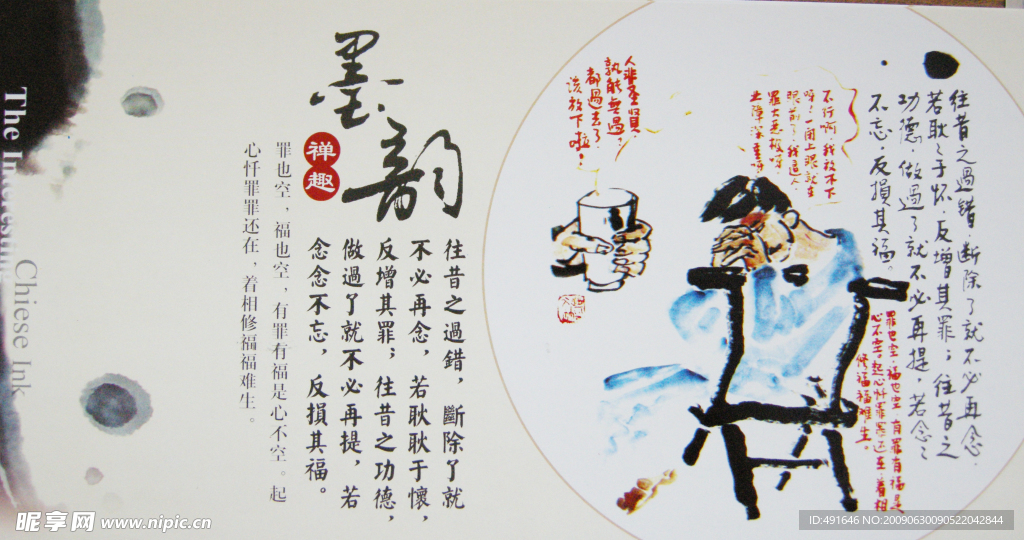 The Interesting
Chiese Ink
墨韵
禅趣
往昔之過錯，斷除了就
不必再念，若耿耿于懷，
反增其罪；往昔之功德，
做過了就不必再提，若
念念不忘，反損其福。
罪也空，福也空，有罪有福是心不空。起
心忏罪罪还在，着相修福福难生。
人非圣賢
孰能無過，
都過去了，
該放下啦！
不行啊我放不下
呀！一閉上眼就在
眼前了我這人
罪大惡極呀
业障深重呀
往昔之過錯，斷除了就不必再念，
若耿耿于怀，反增其罪；往昔之
功德，做過了就不必再提，若念念
不忘，反損其福。
罪也空，福也空，有罪有福是
心不空。起心忏罪罪还在，着相
修福福难生。
昵享网 www.nipic.cn
ID:491646 NO:20090630090522042844